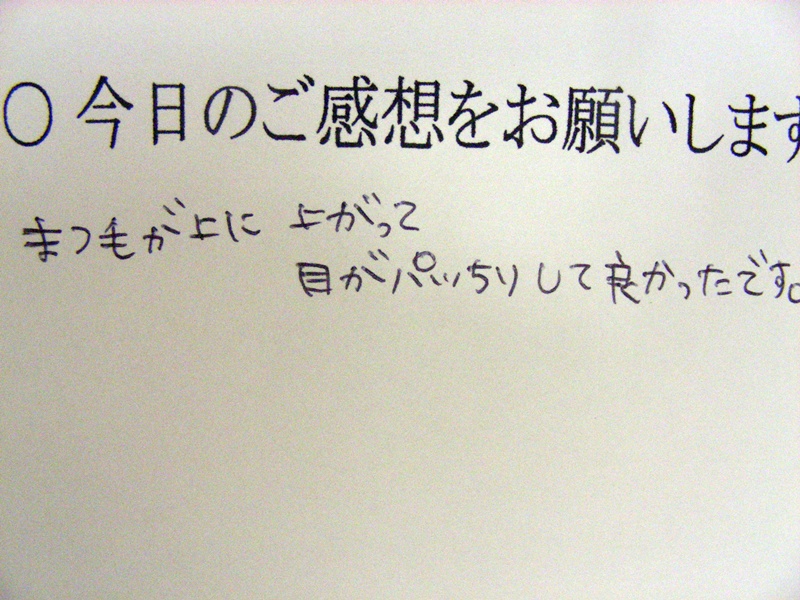 ○ 今日のご感想をお願いします
まつ毛が上に 上がって
目がパッちりして良かったです。